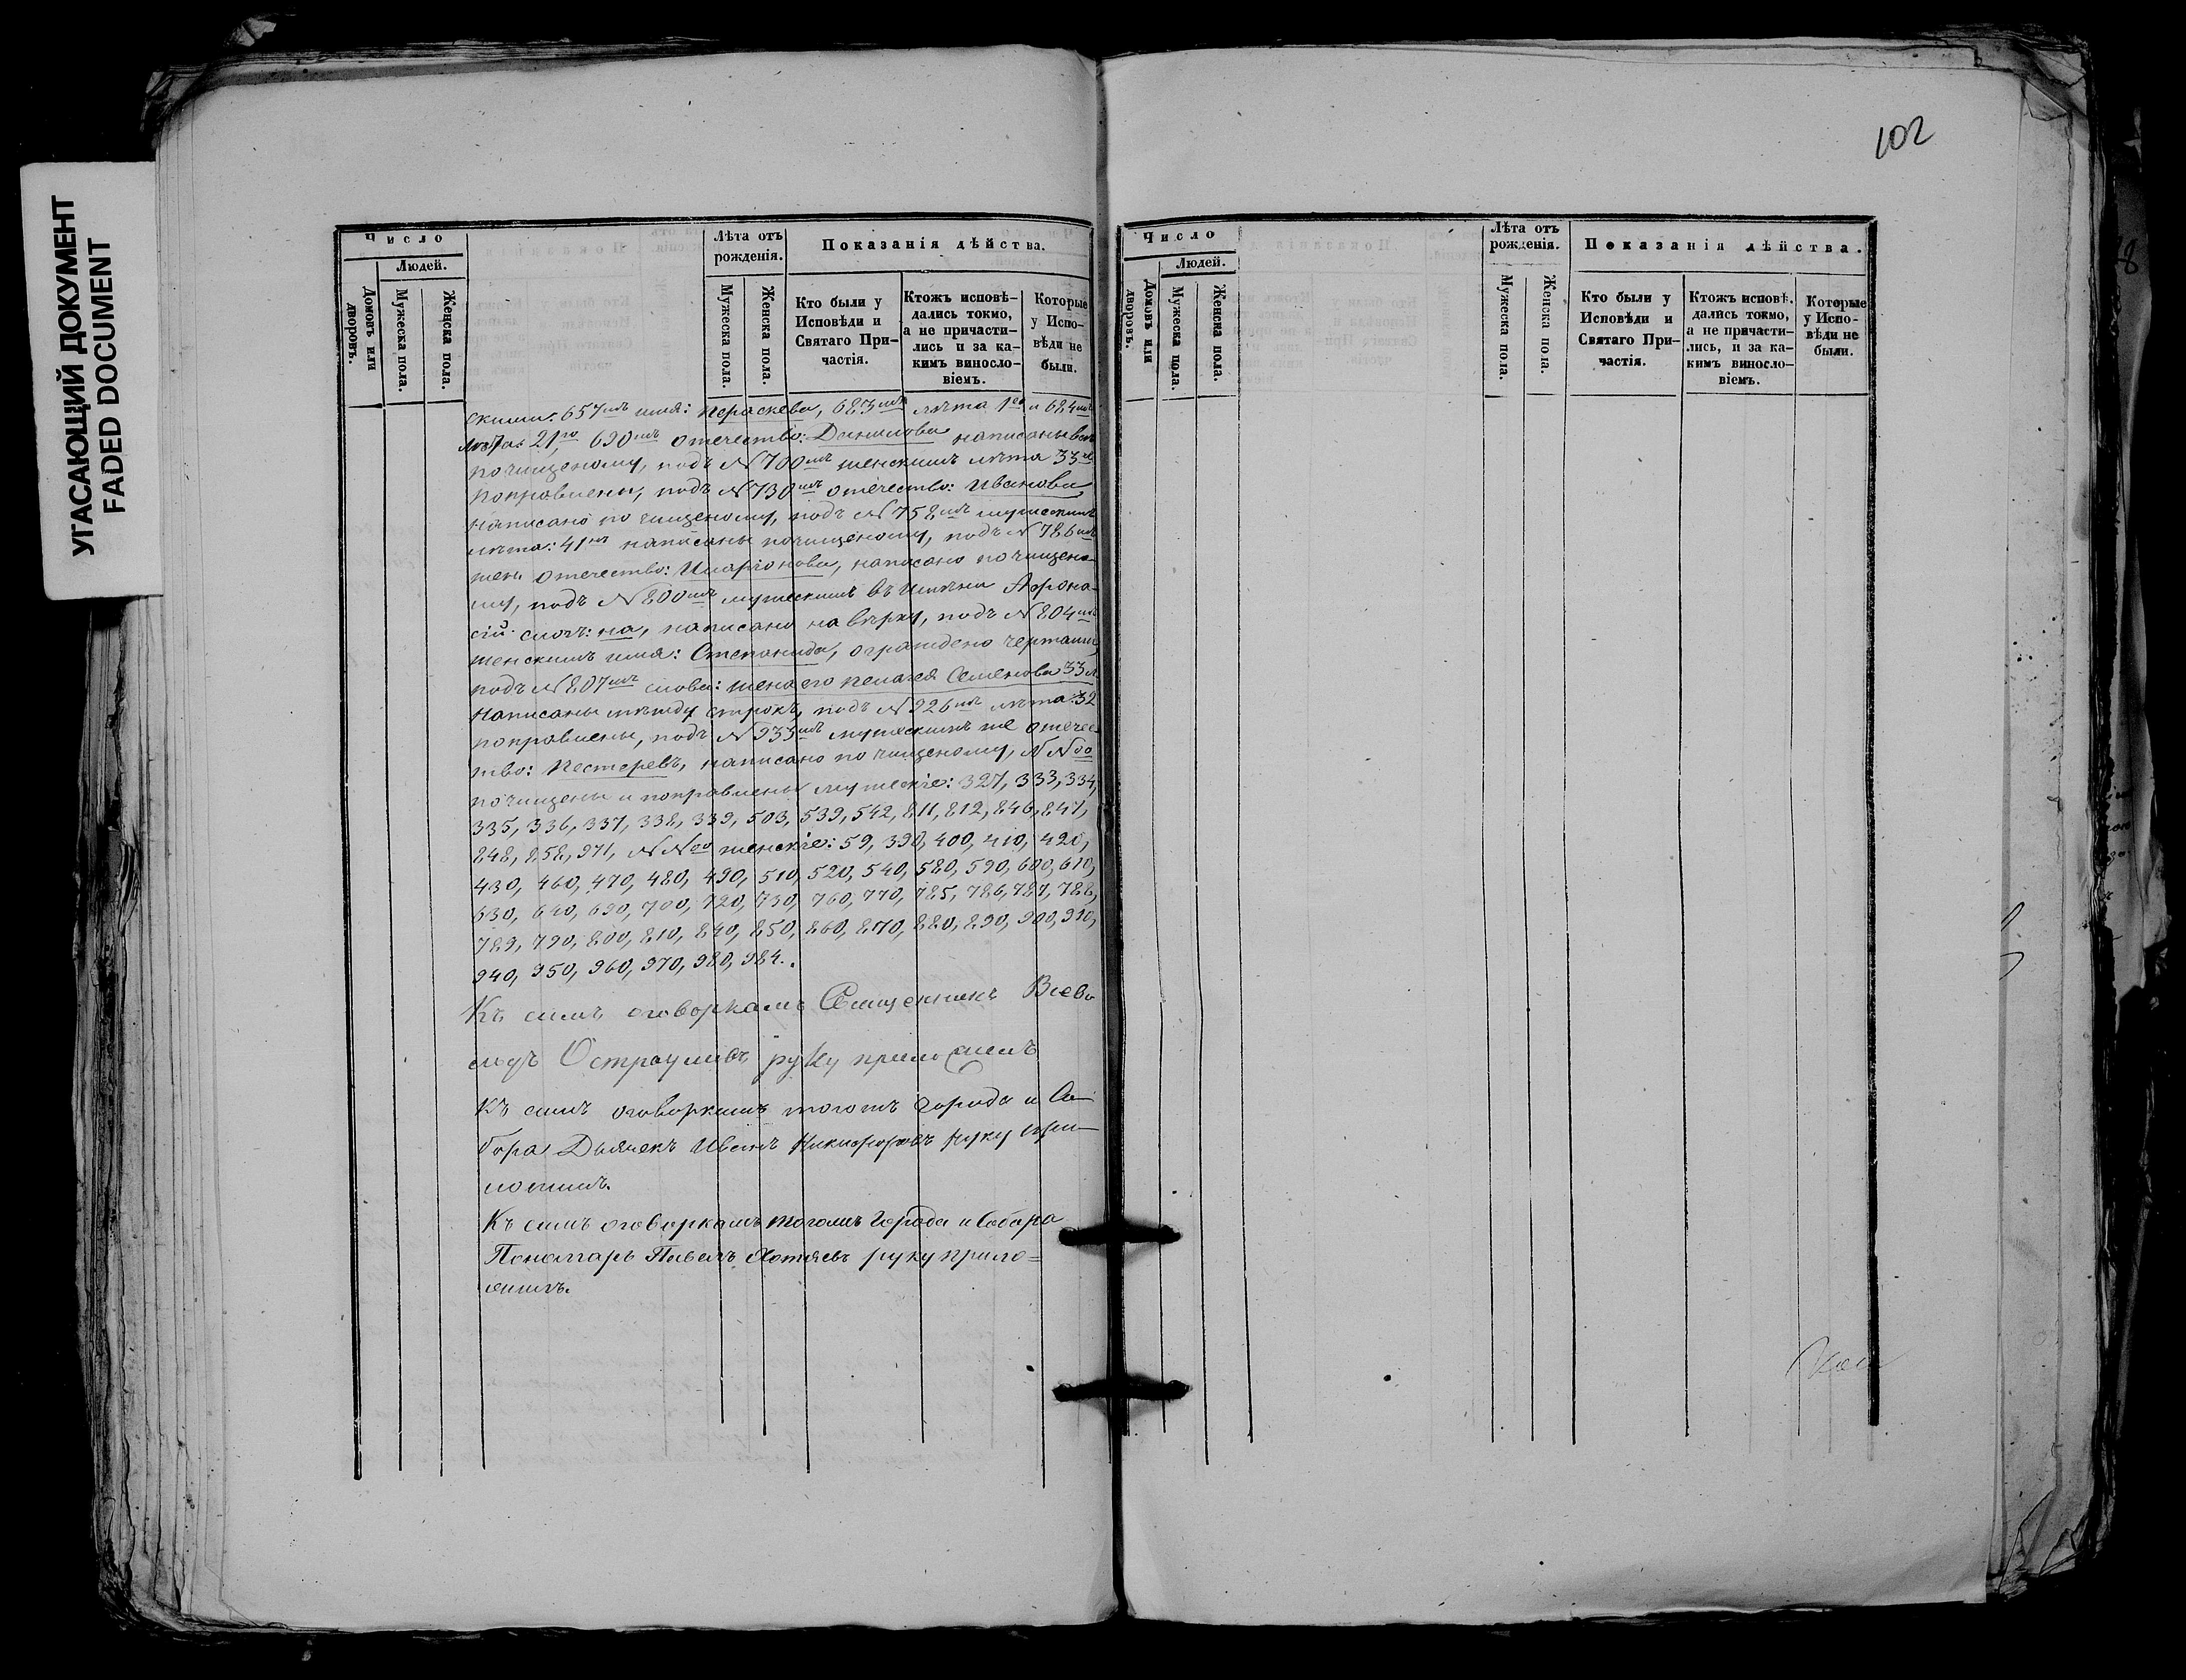 УГАСАЮЩИЙ ДОКУМЕНТ
FADED DOCUMENT
102
Число
Людей.
Домовъ или дворовъ.
Мужеска пола.
Женска пола.
Лѣта отъ рожденія.
Мужеска пола.
Женска пола.
Показанія дѣйства.
Кто были у Исповѣди и Святаго Причастія.
Ктожъ исповѣдались токмо, а не причастились и за какимъ винословіемъ.
Которые у Исповѣди не были.
скимъ: 657мъ имя: Параскева, 683мъ лѣта 1го и 684мъ
лѣта: 21го, 690мъ отечество: Данилова написаны
по чищеному, подъ N 700мъ женскимъ лѣта 33
поправлены, подъ N 730мъ отечество: Иванова
написано по чищеному, подъ N 758мъ мужескимъ
лѣта: 41 написаны по чищеному, подъ N 786мъ
жен: отечество: Иларіонова, написано по чищено-
му, подъ N 800мъ мужескимъ въ имени Афона-
сій слогъ: на, написано на верху, подъ N 804мъ
женскимъ имя: Степанида, ограждено чертами,
подъ N 807мъ слова: жена его Пелагея Семенова 33
написаны между строкъ, подъ N 926мъ лѣта 32
поправлены, подъ N 933мъ мужескимъ же отечес-
тво: Нестеревъ, написано по чищеному, NN
по чищены и поправлены мужескіе: 327, 333, 334,
335, 336, 337, 338, 339, 503, 539, 542, 811, 812, 846, 847,
848, 858, 971, NN женскіе: 59, 390, 400, 410, 420,
430, 460, 470, 480, 490, 510, 520, 540, 580, 590, 600, 610,
630, 640, 690, 700, 720, 730, 760, 770, 785, 786, 787, 788,
789, 790, 800, 810, 840, 850, 860, 870, 880, 890, 900, 910,
940, 950, 960, 970, 980, 984.
Къ симъ оговоркамъ Священникъ
Остроумовъ руку приложилъ
Къ симъ оговоркамъ тогожъ города и Со-
бора Дьячекъ Иванъ Никифоровъ руку при-
ложилъ.
Къ симъ оговоркамъ тогожъ Города и Собора
Пономарь Павелъ Хотяевъ руку прило=
жилъ.
Число
Людей.
Домовъ или дворовъ.
Мужеска пола.
Женска пола.
Лѣта отъ рожденія.
Мужеска пола.
Женска пола.
Показанія дѣйства.
Кто были у Исповѣди и Святаго Причастія.
Ктожъ исповѣдались токмо, а не причастились, и за какимъ винословіемъ.
Которые у Исповѣди не были.